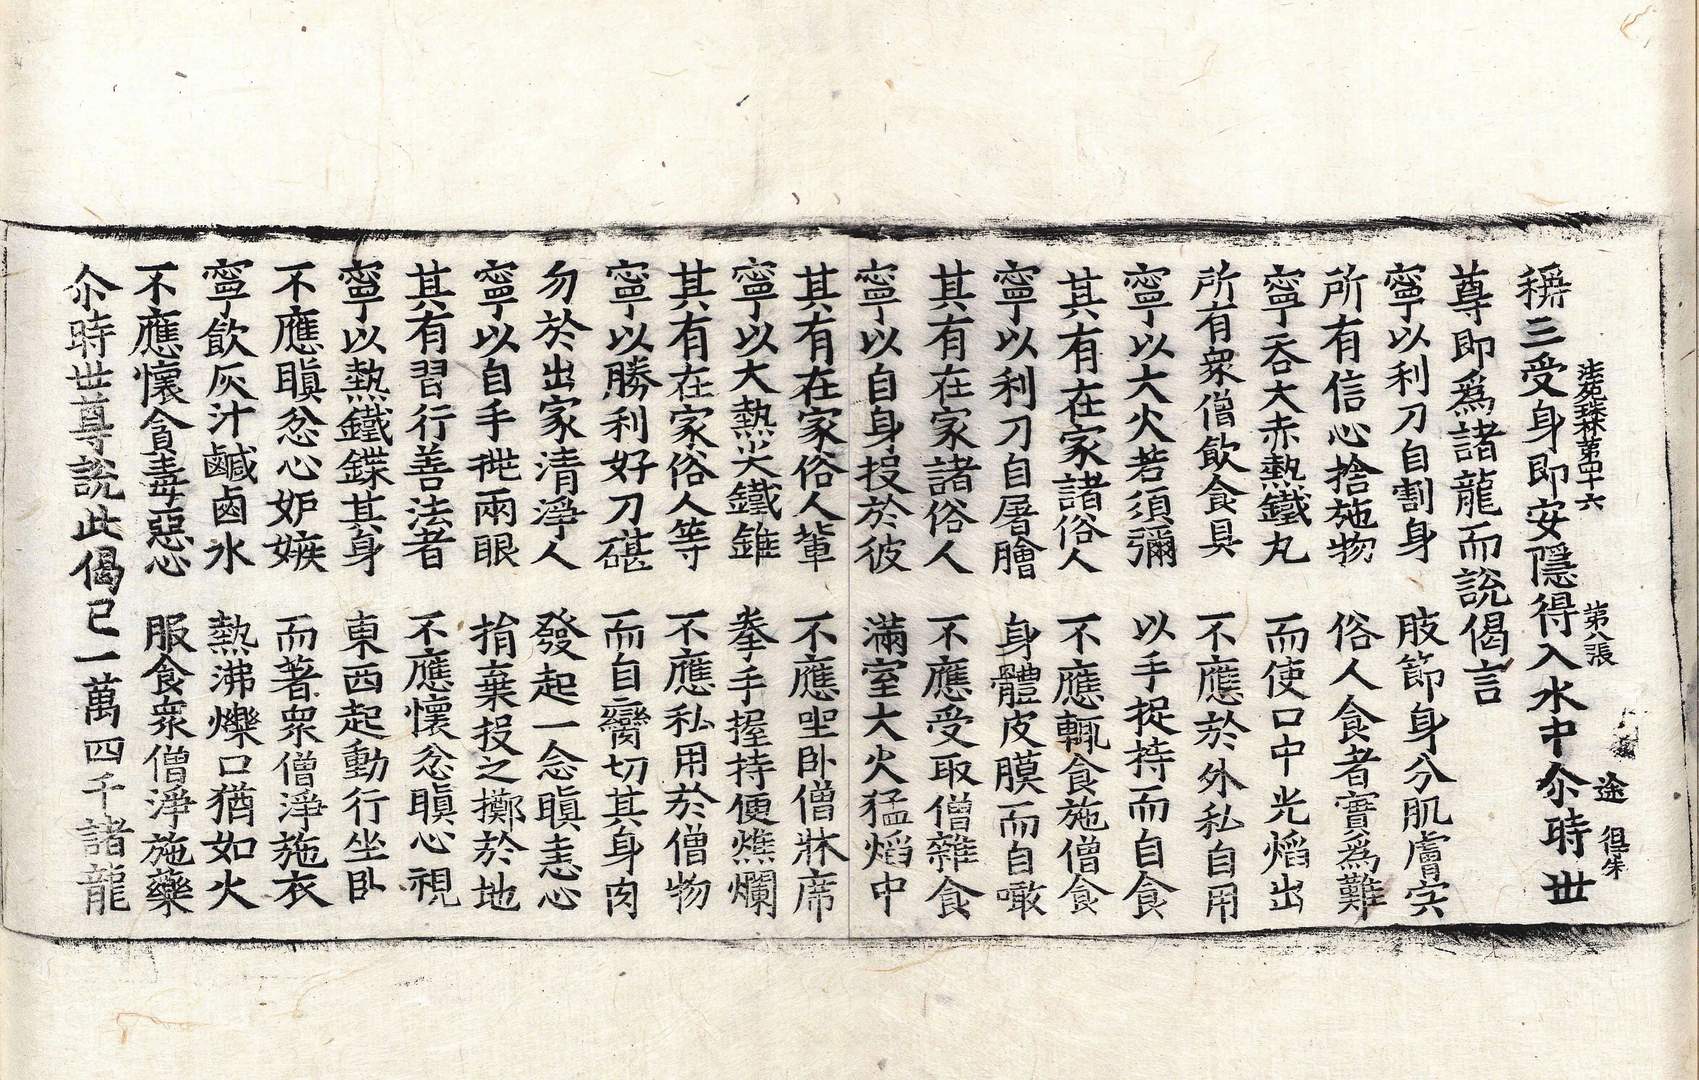 法苑珠林第四十六 第八張 途
稱三受身即安隱得入水中尒時世
尊即爲諸龍而說偈言
寧以利刀自割身 肢節身分肌膚宍
所有信心捨施物 俗人食者實爲難
寧吞大赤熱鐵丸 而使口中光焰出
所有衆僧飲食具 不應於外私自用
寧以大火若須彌 以手捉持而自食
其有在家諸俗人 不應輒食施僧食
寧以利刀自屠膾 身體皮膜而自噉
其有在家諸俗人 不應受取僧雜食
寧以自身投於彼 滿室大火猛焰中
其有在家俗人輩 不應坐卧僧牀席
寧以大熱尖鐵錐 拳手握持便燋爛
其有在家俗人等 不應私用於僧物
寧以勝利好刀碪 而自臠切其身肉
勿於出家清淨人 發起一念瞋恚心
寧以自手挑兩眼 捐棄投之擲於地
其有習行善法者 不應懷忿瞋心視
寧以熱鐵鍱其身 東西起動行坐卧
不應瞋忿心妒嫉 而著衆僧淨施衣
寧飲灰汁鹹鹵水 熱沸爍口猶如火
不應懷貪毒惡心 服食衆僧淨施藥
尒時世尊說此偈已一萬四千諸龍